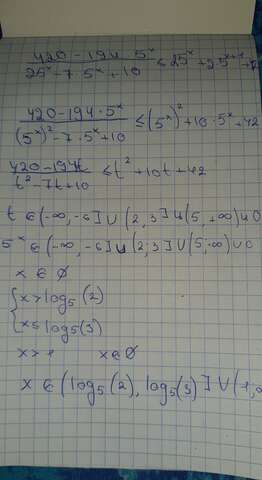 420-194·5^x / 25^x-7·5^x+10 ≤ 25^x+25^{x+1}+
420-194·5^x / (5^x)^2-7·5^x+10 ≤ (5^x)^2+10·5^x+42
420-194t / t^2-7t+10 ≤ t^2+10t+42
t ∈ (-∞, -6] ∪ (2, 3] ∪ (5, +∞) ∪ 0
5^x ∈ (-∞, -6] ∪ (2, 3] ∪ (5, ∞) ∪ 0
x ∈ ∅
{ x > log_5(2)
x ≤ log_5(3)
x > 1 x ∈ ∅
x ∈ (log_5(2), log_5(3)] ∪ (1,